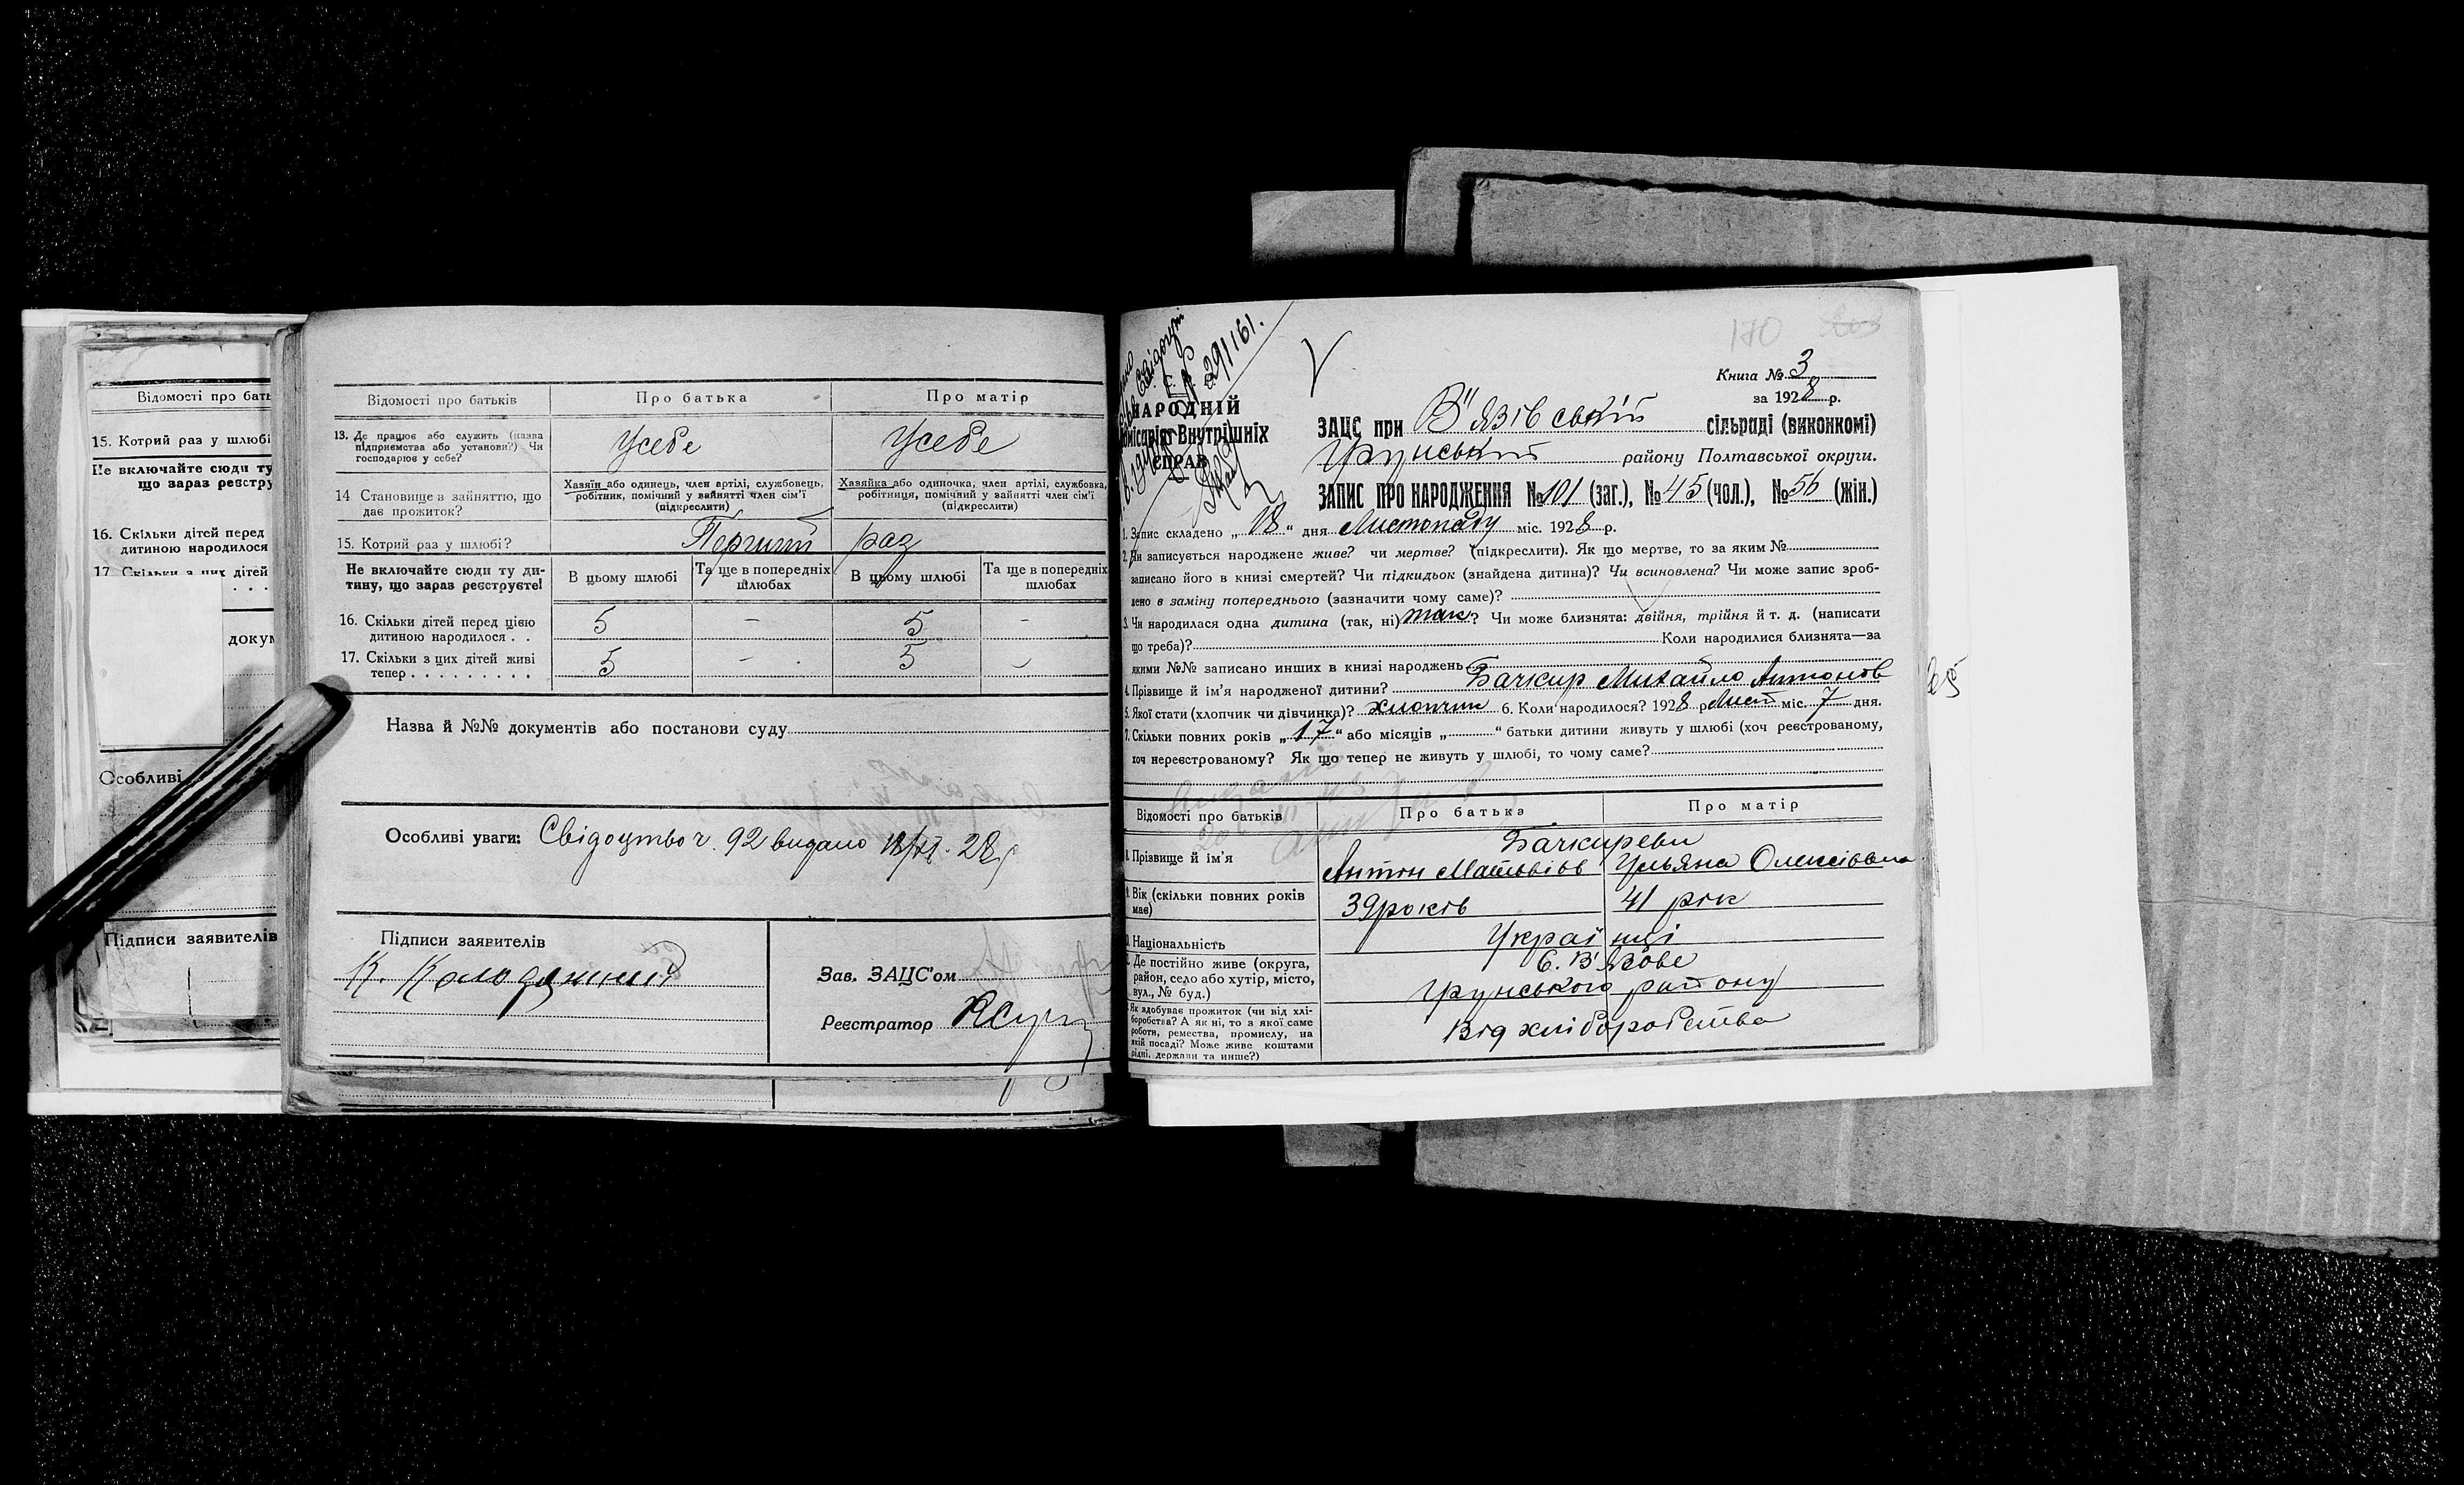 Відомості про бать
15. Котрий раз у шлюбі
Не включайте сюди ту
що зараз реєстру
16. Скільки дітей перед
дитиною народилося
17. Скільки з цих дітей
докум
Особливі
Підписи заявителів
Відомості про батьків
Про батька
Про матір
13. Де працює або служить (назва
підприємства або установи?) Чи
господарює у себе?
У себе
У себе
14 Становище в зайняттю, що
дає прожиток?
Хазяїн або одинець, член артілі, службовець,
робітник, помічний у зайнятті член сім'ї
(підкреслити)
Хазяйка або одиночка, член артілі, службовка,
робітниця, помічний у зайнятті член сім'ї
(підкреслити)
15. Котрий раз у шлюбі?
Перший раз
Не включайте сюди ту ди-
тину, що зараз реєструєте!
В цьому шлюбі
Та ще в попередніх
шлюбах
В цьому шлюбі
Та ще в попередніх
шлюбах
16. Скільки дітей перед цією
дитиною народилося . .
5 - 5 -
17. Скільки з цих дітей живі
тепер . . . . . . . . .
5 - 5 -
Назва й №№ документів або постанови суду
Особливі уваги: Свідоцтво ч. 92 видано 18/XI. 28 р
Підписи заявителів
К. Колодяжний
Зав. ЗАЦС'ом
Реєстратор
291161.
170
Книга № 3
за 1928 р.
НАРОДНІЙ
Комісаріят Внутрішніх
СПРАВ
ЗАЦС при В"язівській сільраді (виконкомі)
Грунський району Полтавської округи.
ЗАПИС ПРО НАРОДЖЕННЯ №101 (заг.), №45 (чол.), №56 (жін.)
1. Запис складено „18“ дня Листопаду міс. 1928 р.
2. Чи записується народжене живе? чи мертве? (підкреслити). Як що мертве, то за яким №
записано його в книзі смертей? Чи підкидьок (знайдена дитина)? Чи всиновлена? Чи може запис зроб-
лено в заміну попереднього (зазначити чому саме)?
3. Чи народилася одна дитина (так, ні) так? Чи може близнята: двійня, трійня й т. д. (написати
що треба)? Коли народилися близнята—за
якими №№ записано инших в книзі народжень
4. Прізвище й ім'я народженої дитини? Бачкир Михайло Антонов
5. Якої стати (хлопчик чи дівчинка)? хлопчик 6. Коли народилося? 1928 р Лист міс. 7 дня.
7. Скільки повних років „17“ або місяців „ “ батьки дитини живуть у шлюбі (хоч реєстрованому,
хоч нереєстрованому? Як що тепер не живуть у шлюбі, то чому саме?
Відомості про батьків
Про батька
Про матір
8. Прізвище й ім'я
Бачкиреви
Антон Матвіів
Ульяна Олексіівна
9. Вік (скільки повних років
має)
39 років
41 рік
10. Національність
Українці
11. Де постійно живе (округа,
район, село або хутір, місто,
вул., № буд.)
С. В'язове
Грунського району
12. Як здобуває прожиток (чи від хлі-
боробства? А як ні, то з якої саме
роботи, ремества, промислу, на
якій посаді? Може живе коштами
рідні, держави та инше?)
Від хліборобства